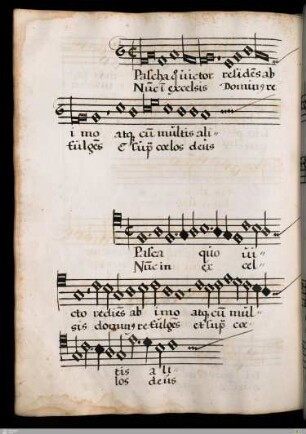 Pascha q̃ victor rediẽs ab
Nũc ĩ excelsis Dominus re
i mo atq̃ cũ multis ali-
fulgẽs & sup̃ cœlos deus
Pasca quo vi-
Nunc in ex cel-
cto rediẽs ab i mo atq̃ cũ mul-
sis dominus refulgẽs et sup̃ cœ-
tis a li
los deus